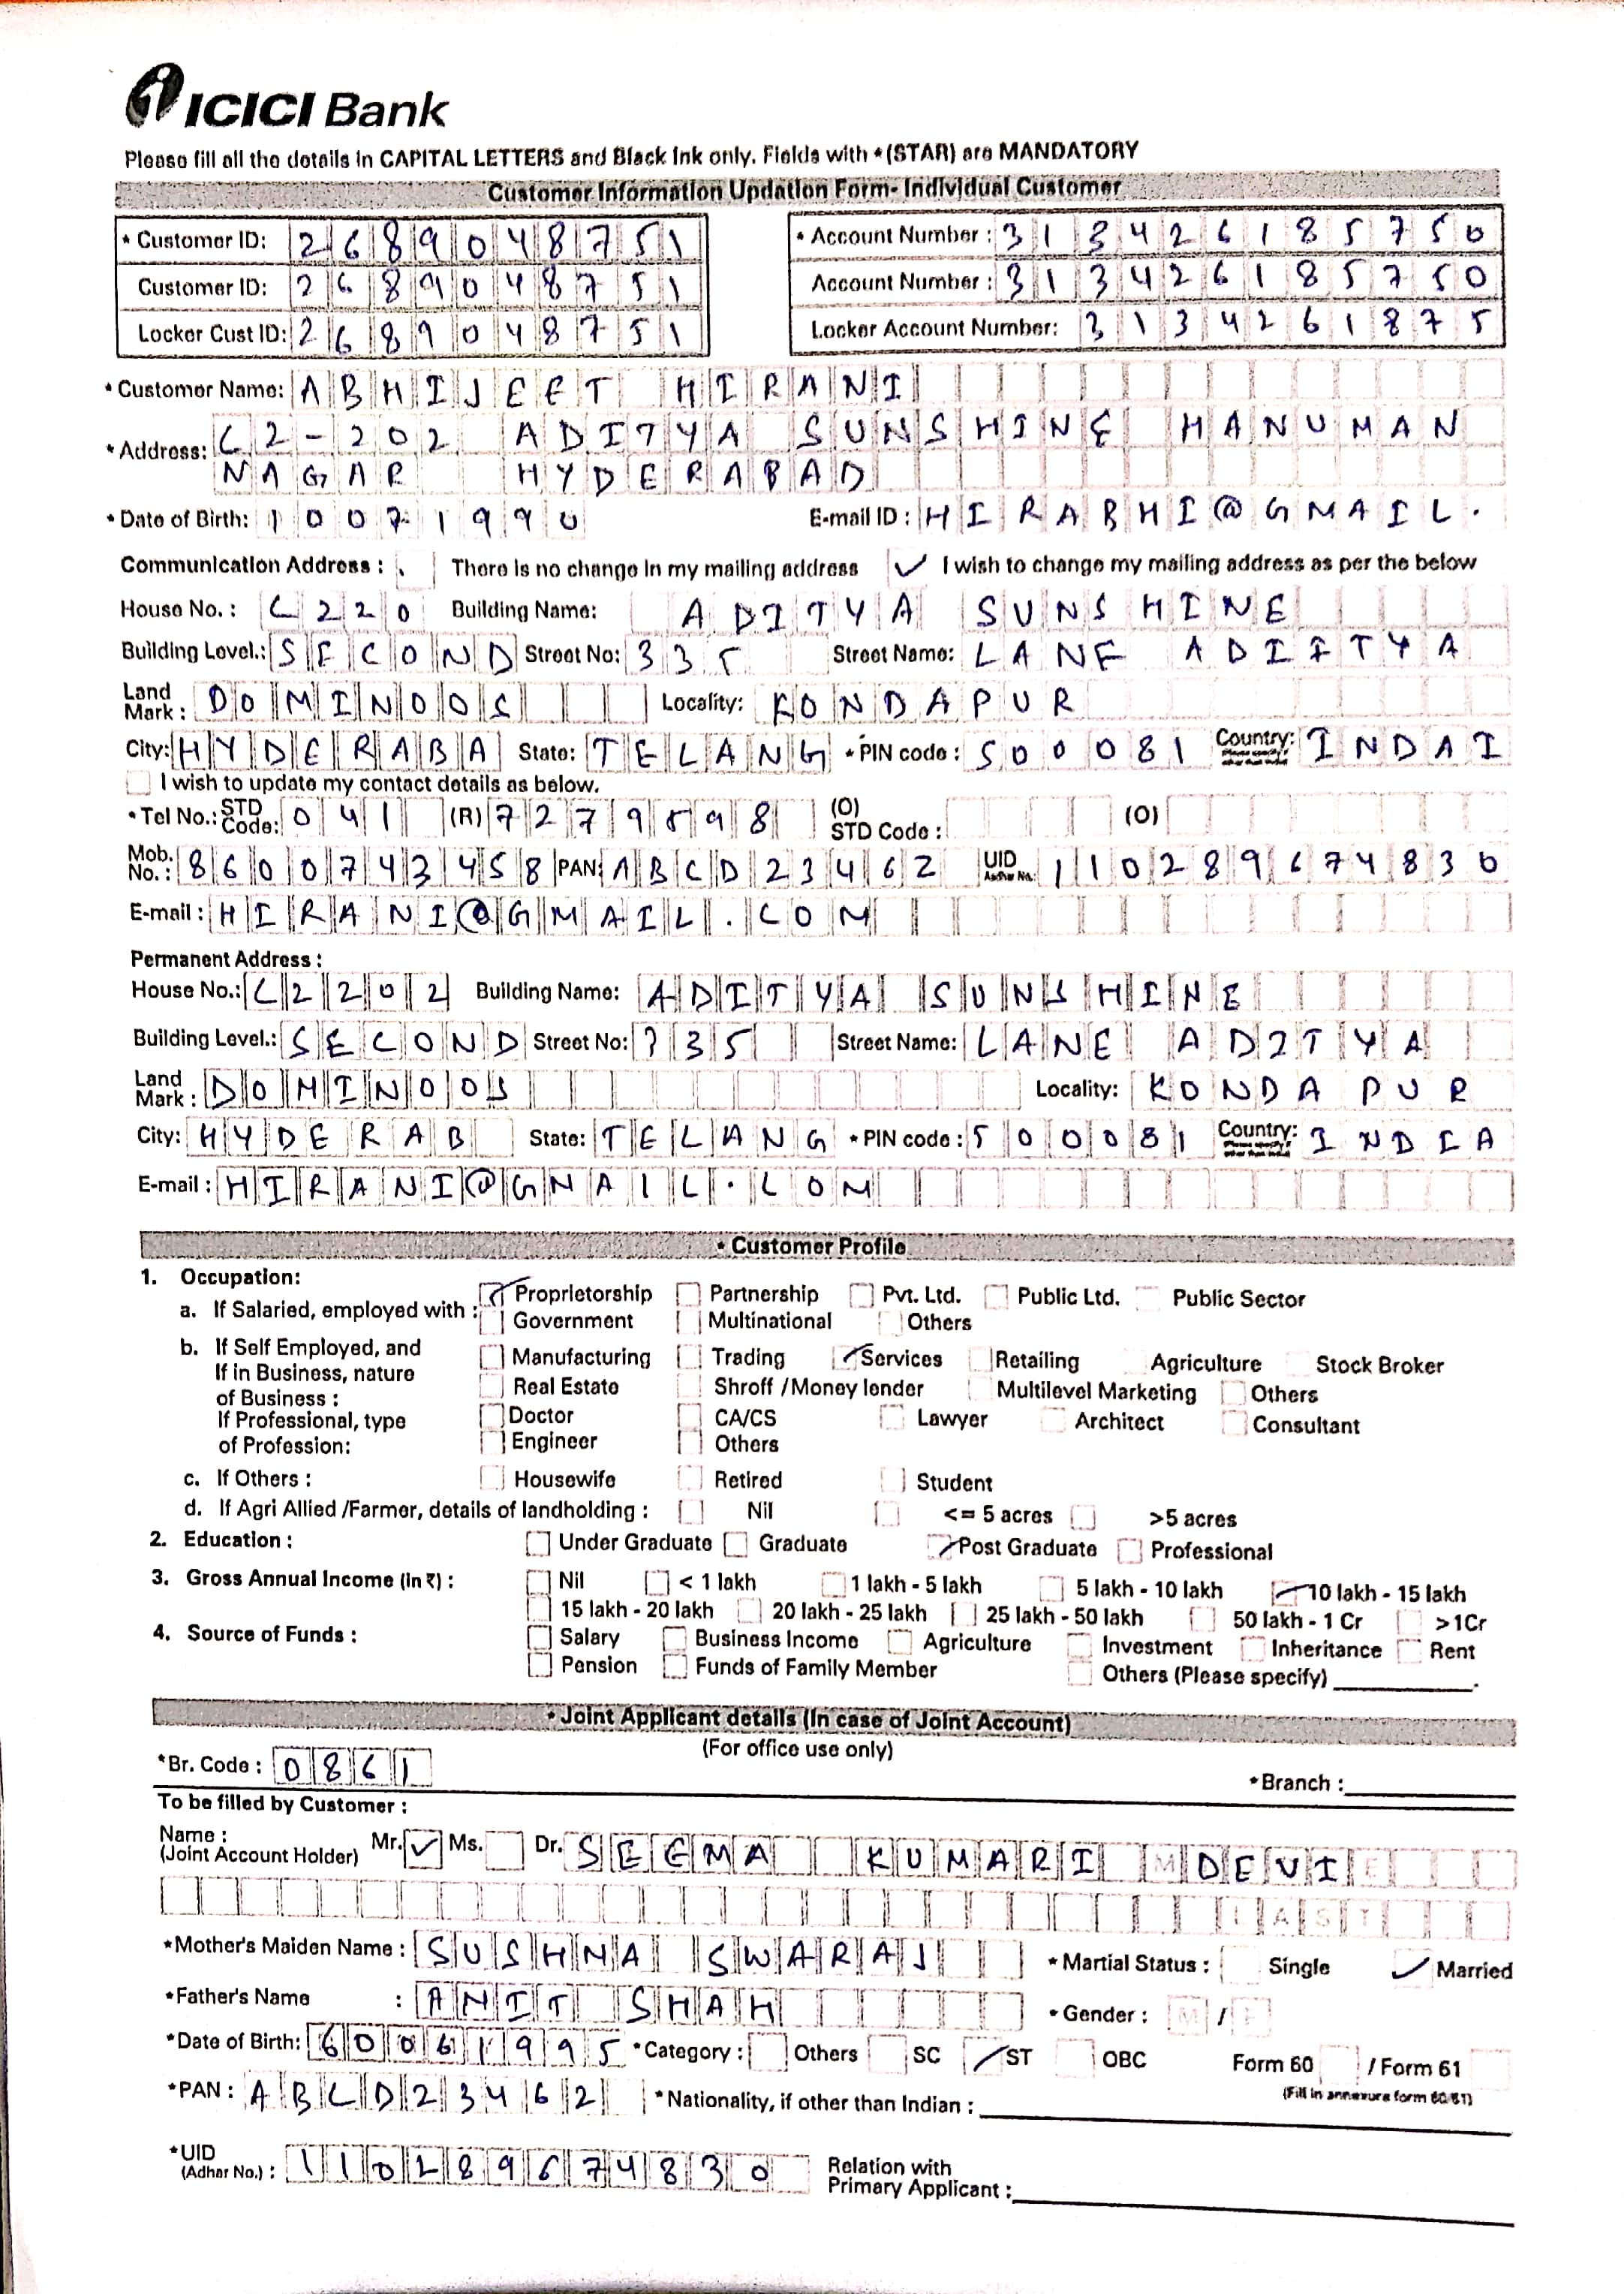 ICICI Bank
Please fill all the details in CAPITAL LETTERS and Black Ink only. Fields with *(STAR) are MANDATORY
Customer Information Updation Form- Individual Customer
* Customer ID: 2689048751 * Account Number : 313426185750
Customer ID: 2689048751 Account Number : 313426185750
Locker Cust ID: 2689048751 Locker Account Number: 3134261875
* Customer Name: ABHIJEET HIRANI
* Address: C2-202 ADITYA SUNSHINE HANUMAN
NAGAR HYDERABAD
* Date of Birth: 10071990 E-mail ID : HIRABHI@GMAIL.
Communication Address : There is no change in my mailing address ✓ I wish to change my mailing address as per the below
House No. : C220 Building Name: ADITYA SUNSHINE
Building Level.: SECOND Street No: 335 Street Name: LANE ADIITYA
Land Mark : DOMINOOS Locality: KONDAPUR
City: HYDERABA State: TELANG * PIN code : 500081 Country: INDAI
I wish to update my contact details as below.
* Tel No.: STD Code: 041 (R) 7279898 (O) STD Code : (O)
Mob. No. : 8600743458 PAN: ABCD23462 UID Adhar No. 110289674830
E-mail : HIRANI@GMAIL.COM
Permanent Address :
House No.: C2202 Building Name: ADITYA SUNSHINE
Building Level.: SECOND Street No: 335 Street Name: LANE ADITYA
Land Mark : DOMINOOS Locality: KONDAPUR
City: HYDERAB State: TELANG * PIN code : 500081 Country: INDIA
E-mail : HIRANI@GMAIL.COM
* Customer Profile
1. Occupation:
a. If Salaried, employed with : ✓ Proprietorship Partnership Pvt. Ltd. Public Ltd. Public Sector
Government Multinational Others
b. If Self Employed, and If in Business, nature of Business : Manufacturing Trading ✓ Services Retailing Agriculture Stock Broker
Real Estate Shroff /Money lender Multilevel Marketing Others
If Professional, type of Profession: Doctor CA/CS Lawyer Architect Consultant
Engineer Others
c. If Others : Housewife Retired Student
d. If Agri Allied /Farmer, details of landholding : Nil <= 5 acres >5 acres
2. Education : Under Graduate Graduate ✓ Post Graduate Professional
3. Gross Annual Income (In ₹) : Nil < 1 lakh 1 lakh - 5 lakh 5 lakh - 10 lakh ✓ 10 lakh - 15 lakh
15 lakh - 20 lakh 20 lakh - 25 lakh 25 lakh - 50 lakh 50 lakh - 1 Cr >1Cr
4. Source of Funds : Salary Business Income Agriculture Investment Inheritance Rent
Pension Funds of Family Member Others (Please specify)
* Joint Applicant details (In case of Joint Account)
(For office use only)
*Br. Code : 0861 *Branch :
To be filled by Customer :
Name : (Joint Account Holder) Mr. ✓ Ms. Dr. SEEMA KUMARI DEVI
LAST
*Mother's Maiden Name : SUSHMA SWARAJ * Martial Status : Single ✓ Married
*Father's Name : AMIT SHAH * Gender : M / F
*Date of Birth: 60061995 *Category : Others SC ✓ ST OBC Form 60 / Form 61
(Fill in annexure form 60/61)
*PAN : ABCD23462 *Nationality, if other than Indian :
*UID (Adhar No.) : 110289674830 Relation with Primary Applicant :